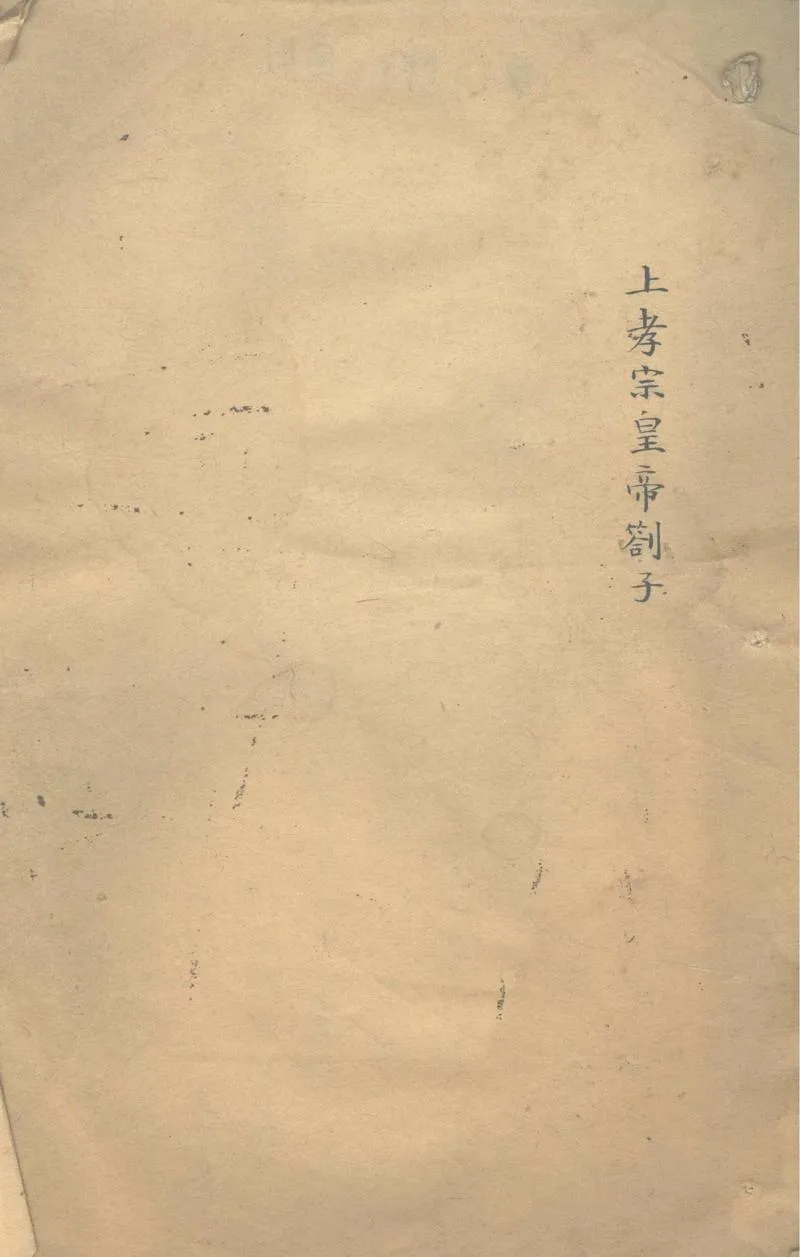 上孝宗皇帝劄子